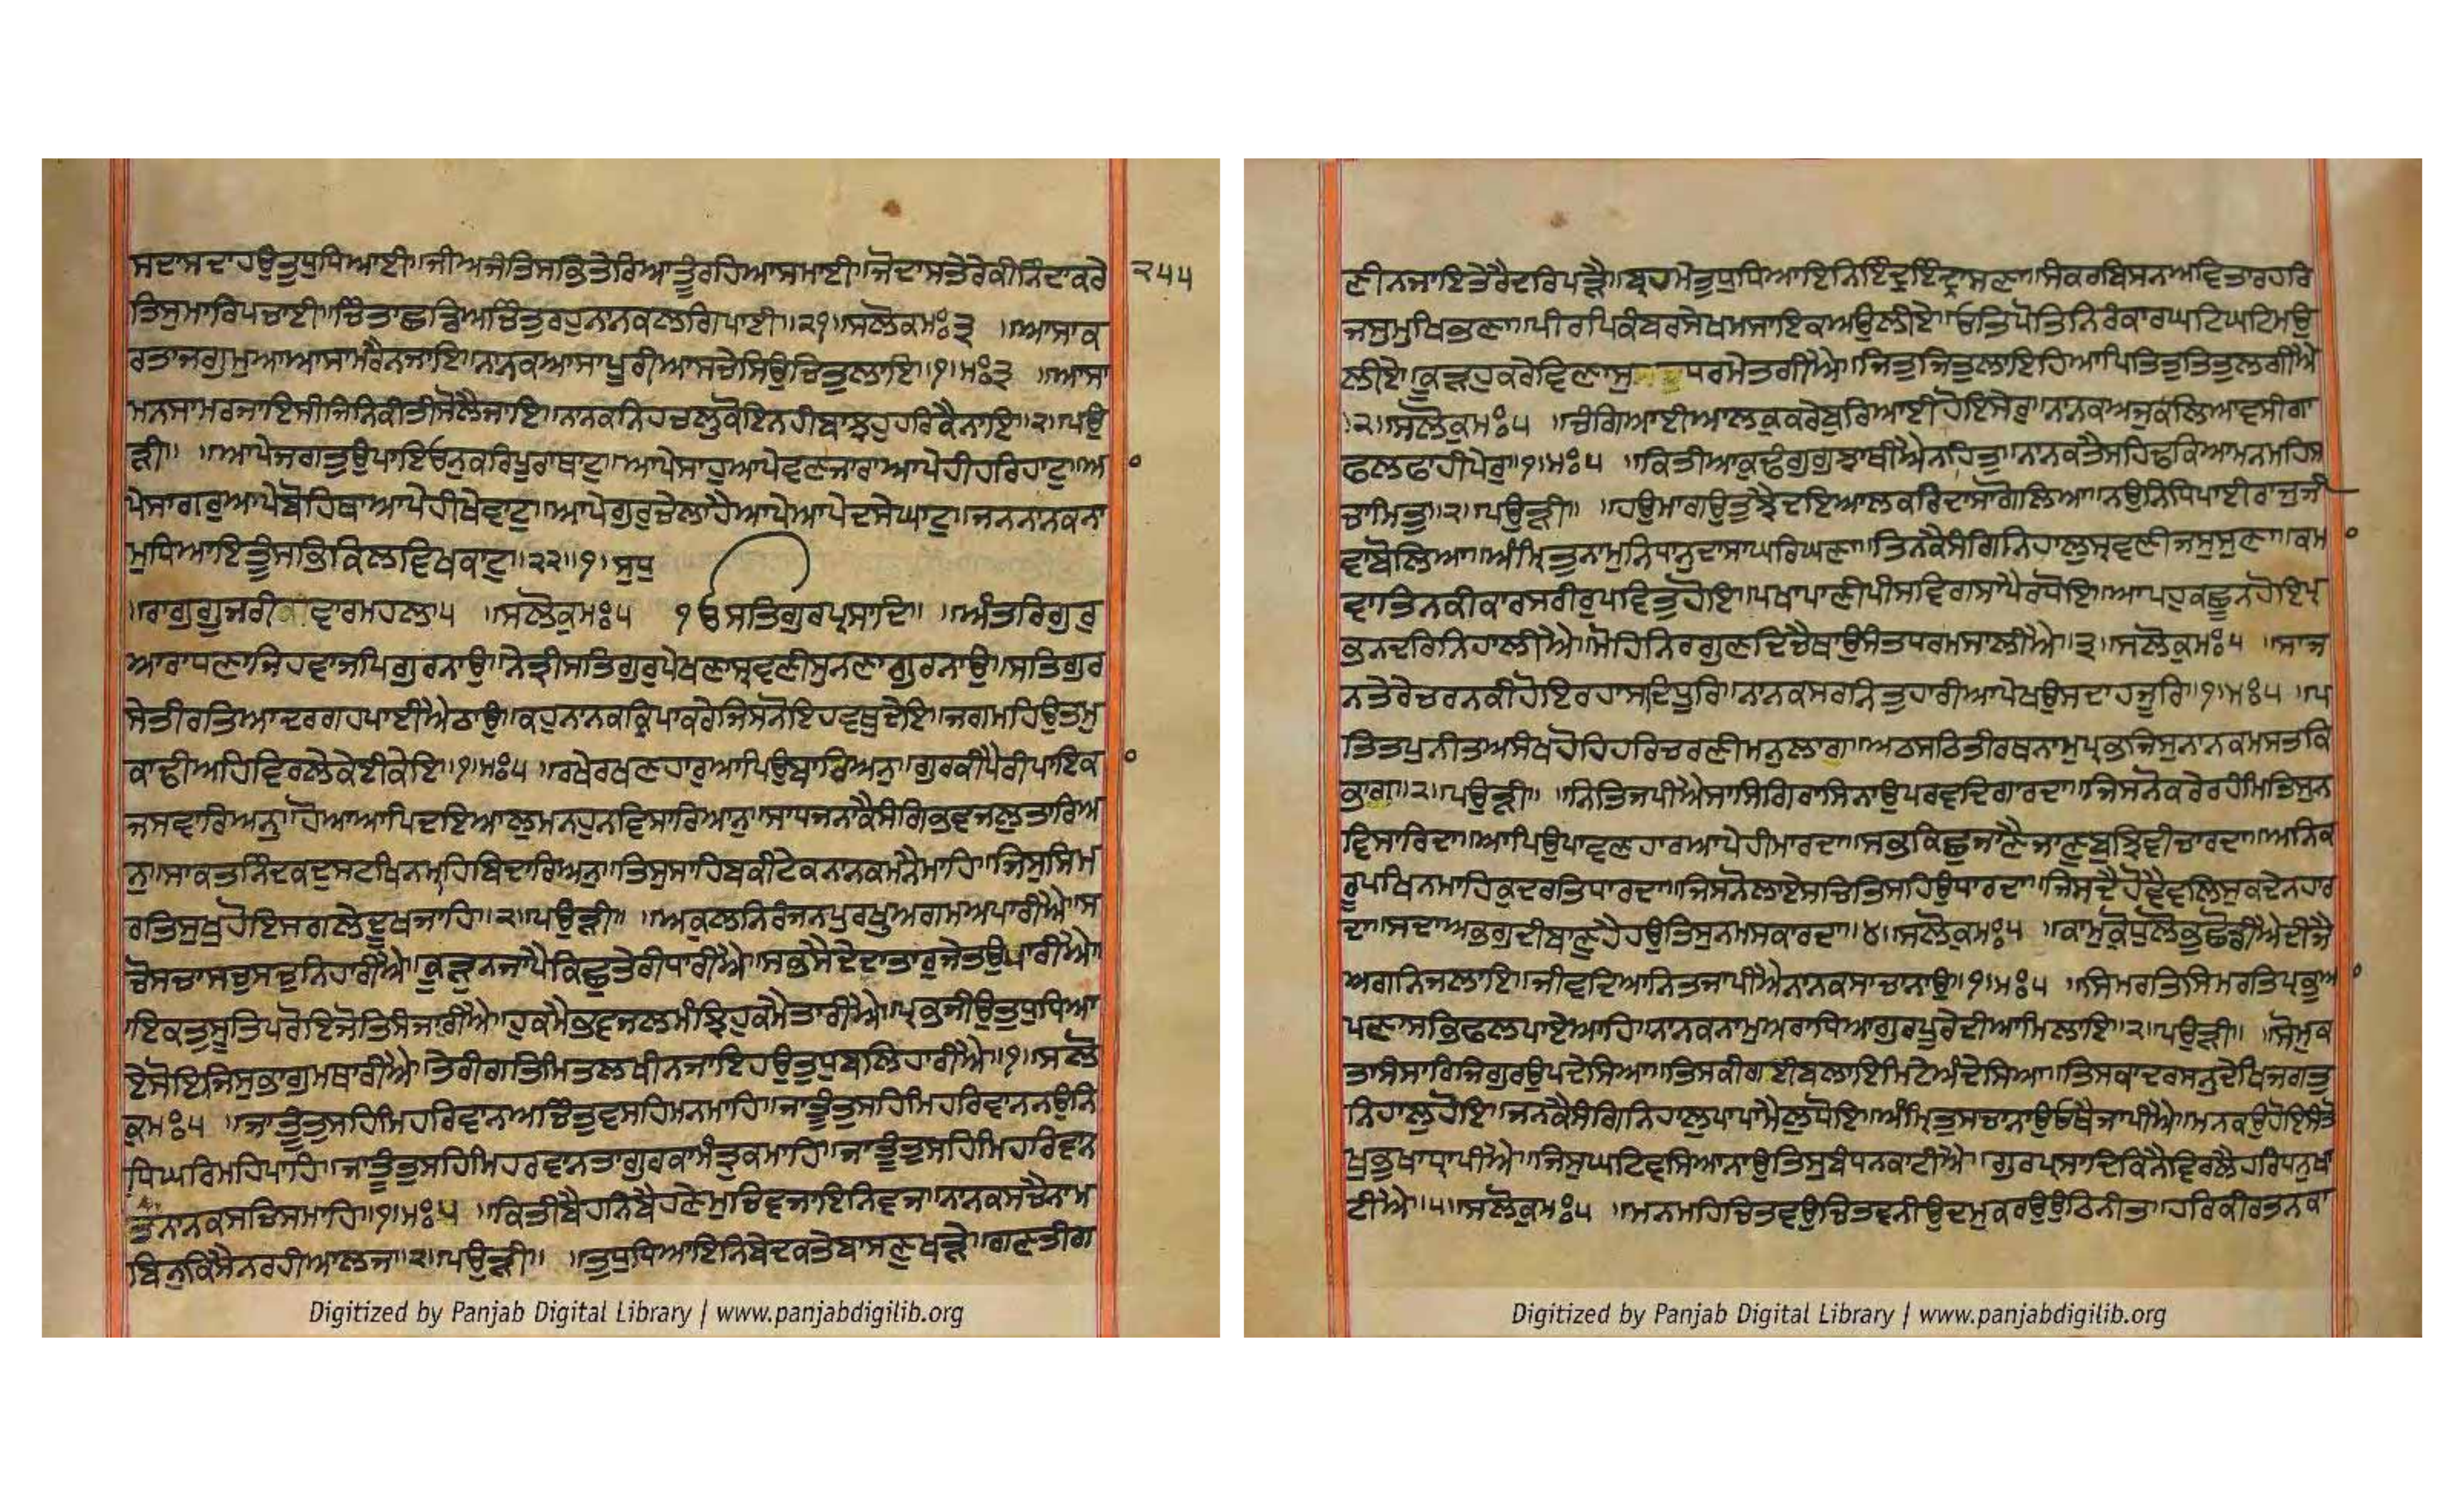 ਸਦਾਸਦਾਹਉਤੁਧੁਧਿਆਈ॥ਜੀਅਜੰਤਿਸਭਿਤੇਰਿਆਤੂੰਰਹਿਆਸਮਾਈ॥ਜੋਦਾਸਤੇਰੇਕੀਨਿੰਦਾਕਰੇ
੨੫੫
ਤਿਸੁਮਾਰਿਪਚਾਈ॥ਚਿੰਤਾਛਡਿਅਚਿੰਤੁਰਹੁਨਾਨਕਲਗਿਪਾਈ॥੨੧॥ਸਲੋਕਮਃ੩ ॥ਆਸਾਕ
ਰਤਾਜਗੁਮੁਆਆਸਾਮਰੈਨਜਾਇ॥ਨਾਨਕਆਸਾਪੂਰੀਆਸਚੇਸਿਉਚਿਤੁਲਾਇ॥੧॥ਮਃ੩ ॥ਆਸਾ
ਮਨਸਾਮਰਜਾਇਸੀਜਿਨਿਕੀਤੀਸੋਲੈਜਾਇ॥ਨਾਨਕਨਿਹਚਲੁਕੋਇਨਹੀਬਾਝਹੁਹਰਿਕੈਨਾਇ॥੨॥ਪਉ
ੜੀ॥ ॥ਆਪੇਜਗਤੁਉਪਾਇਓਨੁਕਰਿਪੂਰਾਥਾਟੁ॥ਆਪੇਸਾਹੁਆਪੇਵਣਜਾਰਾਆਪੇਹੀਹਰਿਹਾਟੁ॥ਆ
ਪੇਸਾਗਰੁਆਪੇਬੋਹਿਥਾਆਪੇਹੀਖੇਵਾਟੁ॥ਆਪੇਗੁਰੁਚੇਲਾਹੈਆਪੇਆਪੇਦਸੇਘਾਟੁ॥ਜਨਨਾਨਕਨਾ
ਮੁਧਿਆਇਤੂਸਭਿਕਿਲਵਿਖਕਾਟੁ॥੨੨॥੧॥ਸੁਧੁ
॥ਰਾਗੁਗੂਜਰੀਵਾਰਮਹਲਾ੫ ॥ਸਲੋਕੁਮਃ੫ ੴਸਤਿਗੁਰਪ੍ਰਸਾਦਿ॥ ॥ਅੰਤਰਿਗੁਰੁ
ਆਰਾਧਣਾਜਿਹਵਾਜਪਿਗੁਰਨਾਉ॥ਨੇਤ੍ਰੀਸਤਿਗੁਰੁਪੇਖਣਾਸ੍ਰਵਣੀਸੁਨਣਾਗੁਰਨਾਉ॥ਸਤਿਗੁਰ
ਸੇਤੀਰਤਿਆਦਰਗਹਪਾਈਐਠਾਉ॥ਕਹੁਨਾਨਕਕਿਰਪਾਕਰੇਜਿਸਨੋਇਹਵਥੁਦੇਇ॥ਜਗਮਹਿਉਤਮੁ
ਕਾਢੀਅਹਿਵਿਰਲੇਕੇਈਕੇਇ॥੧॥ਮਃ੫ ॥ਰਖੇਰਖਣਹਾਰੁਆਪਿਉਬਾਰਿਅਨੁ॥ਗੁਰਕੀਪੈਰੀਪਾਇਕ
ਜਸਵਾਰਿਅਨੁ॥ਹੋਆਆਪਿਦਇਆਲੁਮਨਹੁਨਵਿਸਾਰਿਆਨੁ॥ਸਾਧਜਨਾਕੈਸੰਗਿਭਵਜਲੁਤਾਰਿਅ
ਨੁ॥ਸਾਕਤਨਿੰਦਕਦੁਸਟਖਿਨਮਹਿਬਿਦਾਰਿਅਨੁ॥ਤਿਸੁਸਾਹਿਬਕੀਟੇਕਨਾਨਕਮਨੈਮਾਹਿ॥ਜਿਸੁਸਿਮ
ਰਤਿਸੁਖੁਹੋਇਸਗਲੇਦੂਖਜਾਹਿ॥੨॥ਪਉੜੀ॥ ॥ਅਕੁਲਨਿਰੰਜਨਪੁਰਖੁਅਗਮਅਪਾਰੀਐ॥ਸ
ਚੋਸਚਾਸਚੁਸਚੁਨਿਹਾਰੀਐ॥ਕੂੜੁਨਜਾਪੈਕਿਛੁਤੇਰੀਧਾਰੀਐ॥ਸਭਸੈਦੇਦਾਤਾਰੁਜੇਤਉਪਾਰੀਐ॥
ਇਕਤੁਸੂਤਿਪਰੋਇਜੋਤਿਸੰਜਾਰੀਐ॥ਹੁਕਮੈਭਵਜਲਮੰਝਿਹੁਕਮੈਤਾਰੀਐ॥ਪ੍ਰਭਜੀਉਤੁਧੁਧਿਆ
ਏਸੋਇਜਿਸੁਭਾਗੁਮਥਾਰੀਐ॥ਤੇਰੀਗਤਿਮਿਤਲਖੀਨਜਾਇਹਉਤੁਧੁਬਲਿਹਾਰੀਐ॥੧॥ਸਲੋ
ਕੁਮਃ੫ ॥ਜਾਤੂੰਤੁਸਹਿਮਿਹਰਿਵਾਨਅਚਿੰਤੁਵਸਹਿਮਨਮਾਹਿ॥ਜਾਤੂੰਤੁਸਹਿਮਿਹਰਿਵਾਨਨਉਨਿ
ਧਿਘਰਿਮਹਿਪਾਹਿ॥ਜਾਤੂੰਤੁਸਹਿਮਿਹਰਵਾਨਤਾਗੁਰਕਾਮੰਤ੍ਰੁਕਮਾਹਿ॥ਜਾਤੂੰਤੁਸਹਿਮਿਹਰਿਵਾਨ
ਤਾਨਾਨਕਸਚਿਸਮਾਹਿ॥੧॥ਮਃ੫ ॥ਕਿਤੀਬੈਹਨਿਬੈਹਣੇਮੁਚੁਵਜਾਇਨਿਵਜ॥ਨਾਨਕਸਚੈਨਾਮ
ਬਿਨੁਕਿਸੈਨਰਹੀਆਲਜ॥੨॥ਪਉੜੀ॥ ॥ਤੁਧੁਧਿਆਇਨਿਬੇਦਕਤੇਬਾਸਣੁਖੜੇ॥ਗਣਤੀਗ
ਣੀਨਜਾਇਤੇਰੈਦਰਿਪੜੇ॥ਬ੍ਰਹਮੇਤੁਧੁਧਿਆਇਨਿਇੰਦ੍ਰਇੰਦ੍ਰਾਸਣਾ॥ਸੰਕਰਬਿਸਨਅਵਿਤਾਰਹਰਿ
ਜਸੁਮੁਖਿਭਣਾ॥ਪੀਰਪਿਕੰਬਰਸੇਖਮਸਾਇਕਅਉਲੀਏ॥ਓਤਿਪੋਤਿਨਿਰੰਕਾਰਘਟਿਘਟਿਮਉ
ਲੀਏ॥ਕੂੜਹੁਕਰੇਵਿਣਾਸੁਧਰਮੇਤਗੀਐ॥ਜਿਤੁਜਿਤੁਲਾਇਹਿਆਪਿਤਿਤੁਤਿਤੁਲਗੀਐ
॥੨॥ਸਲੋਕੁਮਃ੫ ॥ਚੰਗਿਆਈਆਲਕੁਕਰੇਬੁਰਿਆਈਹੋਇਸੇਰੁ॥ਨਾਨਕਅਜੁਕਲਿਆਵਸੀਗਾ
ਫਲਫਾਹੀਪੇਰੁ॥੧॥ਮਃ੫ ॥ਕਿਤੀਆਕੁਢੰਗਗੁਝਾਥੀਐਨਹਿਤੁ॥ਨਾਨਕਤੈਸਹਿਢਕਿਆਮਨਮਹਿਸ
ਚਾਮਿਤੁ॥੨॥ਪਉੜੀ॥ ॥ਹਉਮਾਗਉਤੁਝੈਦਇਆਲਕਰਿਦਾਸਾਗੋਲਿਆ॥ਨਉਨਿਧਿਪਾਈਰਾਜੁਜੀ
ਵਾਬੋਲਿਆ॥ਅੰਮ੍ਰਿਤੁਨਾਮੁਨਿਧਾਨੁਦਾਸਾਘਰਿਘਣਾ॥ਤਿਨਕੈਸੰਗਿਨਿਹਾਲੁਸ੍ਰਵਣੀਜਸੁਸੁਣਾ॥ਕਮ
ਵਾਤਿਨਕੀਕਾਰਸਰੀਰੁਪਵਿਤੁਹੋਇ॥ਪਖਾਪਾਣੀਪੀਸਵਿਗਸਾਪੈਰਧੋਇ॥ਆਪਹੁਕਛੂਨਹੋਇਪ੍ਰ
ਭਨਦਰਿਨਿਹਾਲੀਐ॥ਮੋਹਿਨਿਰਗੁਣਦਿਚੈਥਾਉਸੰਤਧਰਮਸਾਲੀਐ॥੩॥ਸਲੋਕੁਮਃ੫ ॥ਸਾਜ
ਨਤੇਰੇਚਰਨਕੀਹੋਇਰਹਾਸਦਧੂਰਿ॥ਨਾਨਕਸਰਨਿਤੁਹਾਰੀਆਪੇਖਉਸਦਾਹਜੂਰਿ॥੧॥ਮਃ੫ ॥ਪ
ਤਿਤਪੁਨੀਤਅਸੰਖਹੋਹਿਹਰਿਚਰਣੀਮਨੁਲਾਗ॥ਅਠਸਠਿਤੀਰਥਨਾਮੁਪ੍ਰਭਜਿਸੁਨਾਨਕਮਸਤਕਿ
ਭਾਗ॥੨॥ਪਉੜੀ॥ ॥ਨਿਤਿਜਪੀਐਸਾਸਿਗਿਰਾਸਿਨਾਉਪਰਵਦਿਗਾਰਦਾ॥ਜਿਸਨੋਕਰੇਰਹੰਮਤਿਸੁਨ
ਵਿਸਾਰਿਦਾ॥ਆਪਿਉਪਾਵਣਹਾਰਆਪੇਹੀਮਾਰਦਾ॥ਸਭੁਕਿਛੁਜਾਣੈਜਾਣੁਬੁਝਿਵੀਚਾਰਦਾ॥ਅਨਿਕ
ਰੂਪਖਿਨਮਾਹਿਕੁਦਰਤਿਧਾਰਦਾ॥ਜਿਸਨੋਲਾਏਸਚਿਤਿਸਹਿਉਧਾਰਦਾ॥ਜਿਸਦੈਹੋਵੈਵਲਿਸੁਕਦੇਨਹਾਰ
ਦਾ॥ਸਦਾਅਭਗੁਦੀਬਾਣੁਹੈਹਉਤਿਸੁਨਮਸਕਾਰਦਾ॥੪॥ਸਲੋਕੁਮਃ੫ ॥ਕਾਮੁਕ੍ਰੋਧੁਲੋਭੁਛੋਡੀਐਦੀਜੈ
ਅਗਨਿਜਲਾਇ॥ਜੀਵਦਿਆਨਿਤਜਾਪੀਐਨਾਨਕਸਾਚਾਨਾਉ॥੧॥ਮਃ੫ ॥ਸਿਮਰਤਿਸਿਮਰਤਿਪ੍ਰਭੁਆ
ਪਣਾਸਭਿਫਲਪਾਏਆਹਿ॥ਨਾਨਕਨਾਮੁਅਰਾਧਿਆਗੁਰਪੂਰੇਦੀਆਮਿਲਾਇ॥੨॥ਪਉੜੀ॥ ॥ਸੋਮੁਕ
ਤਾਸੰਸਾਰਿਜਿਗੁਰਉਪਦੇਸਿਆ॥ਤਿਸਕੀਗਈਬਲਾਇਮਿਟੇਅੰਦੇਸਿਆ॥ਤਿਸਕਾਦਰਸਨੁਦੇਖਿਜਗਤੁ
ਨਿਹਾਲੁਹੋਇ॥ਜਨਕੈਸੰਗਿਨਿਹਾਲੁਪਾਪਾਮੈਲੁਧੋਇ॥ਅੰਮ੍ਰਿਤੁਸਚਾਨਾਉਓਥੈਜਾਪੀਐ॥ਮਨਕਉਹੋਇਸੰਤੋ
ਖੁਭੁਖਾਧ੍ਰਾਪੀਐ॥ਜਿਸੁਘਟਿਵਸਿਆਨਾਉਤਿਸੁਬੰਧਨਕਾਟੀਐ॥ਗੁਰਪ੍ਰਸਾਦਿਕਿਨੈਵਿਰਲੈਹਰਿਧਨੁਖਾ
ਟੀਐ॥੫॥ਸਲੋਕੁਮਃ੫ ॥ਮਨਮਹਿਚਿਤਵਉਚਿਤਵਨੀਉਦਮੁਕਰਉਉਠਿਨੀਤ॥ਹਰਿਕੀਰਤਨਕਾ
Digitized by Panjab Digital Library | www.panjabdigilib.org
Digitized by Panjab Digital Library | www.panjabdigilib.org